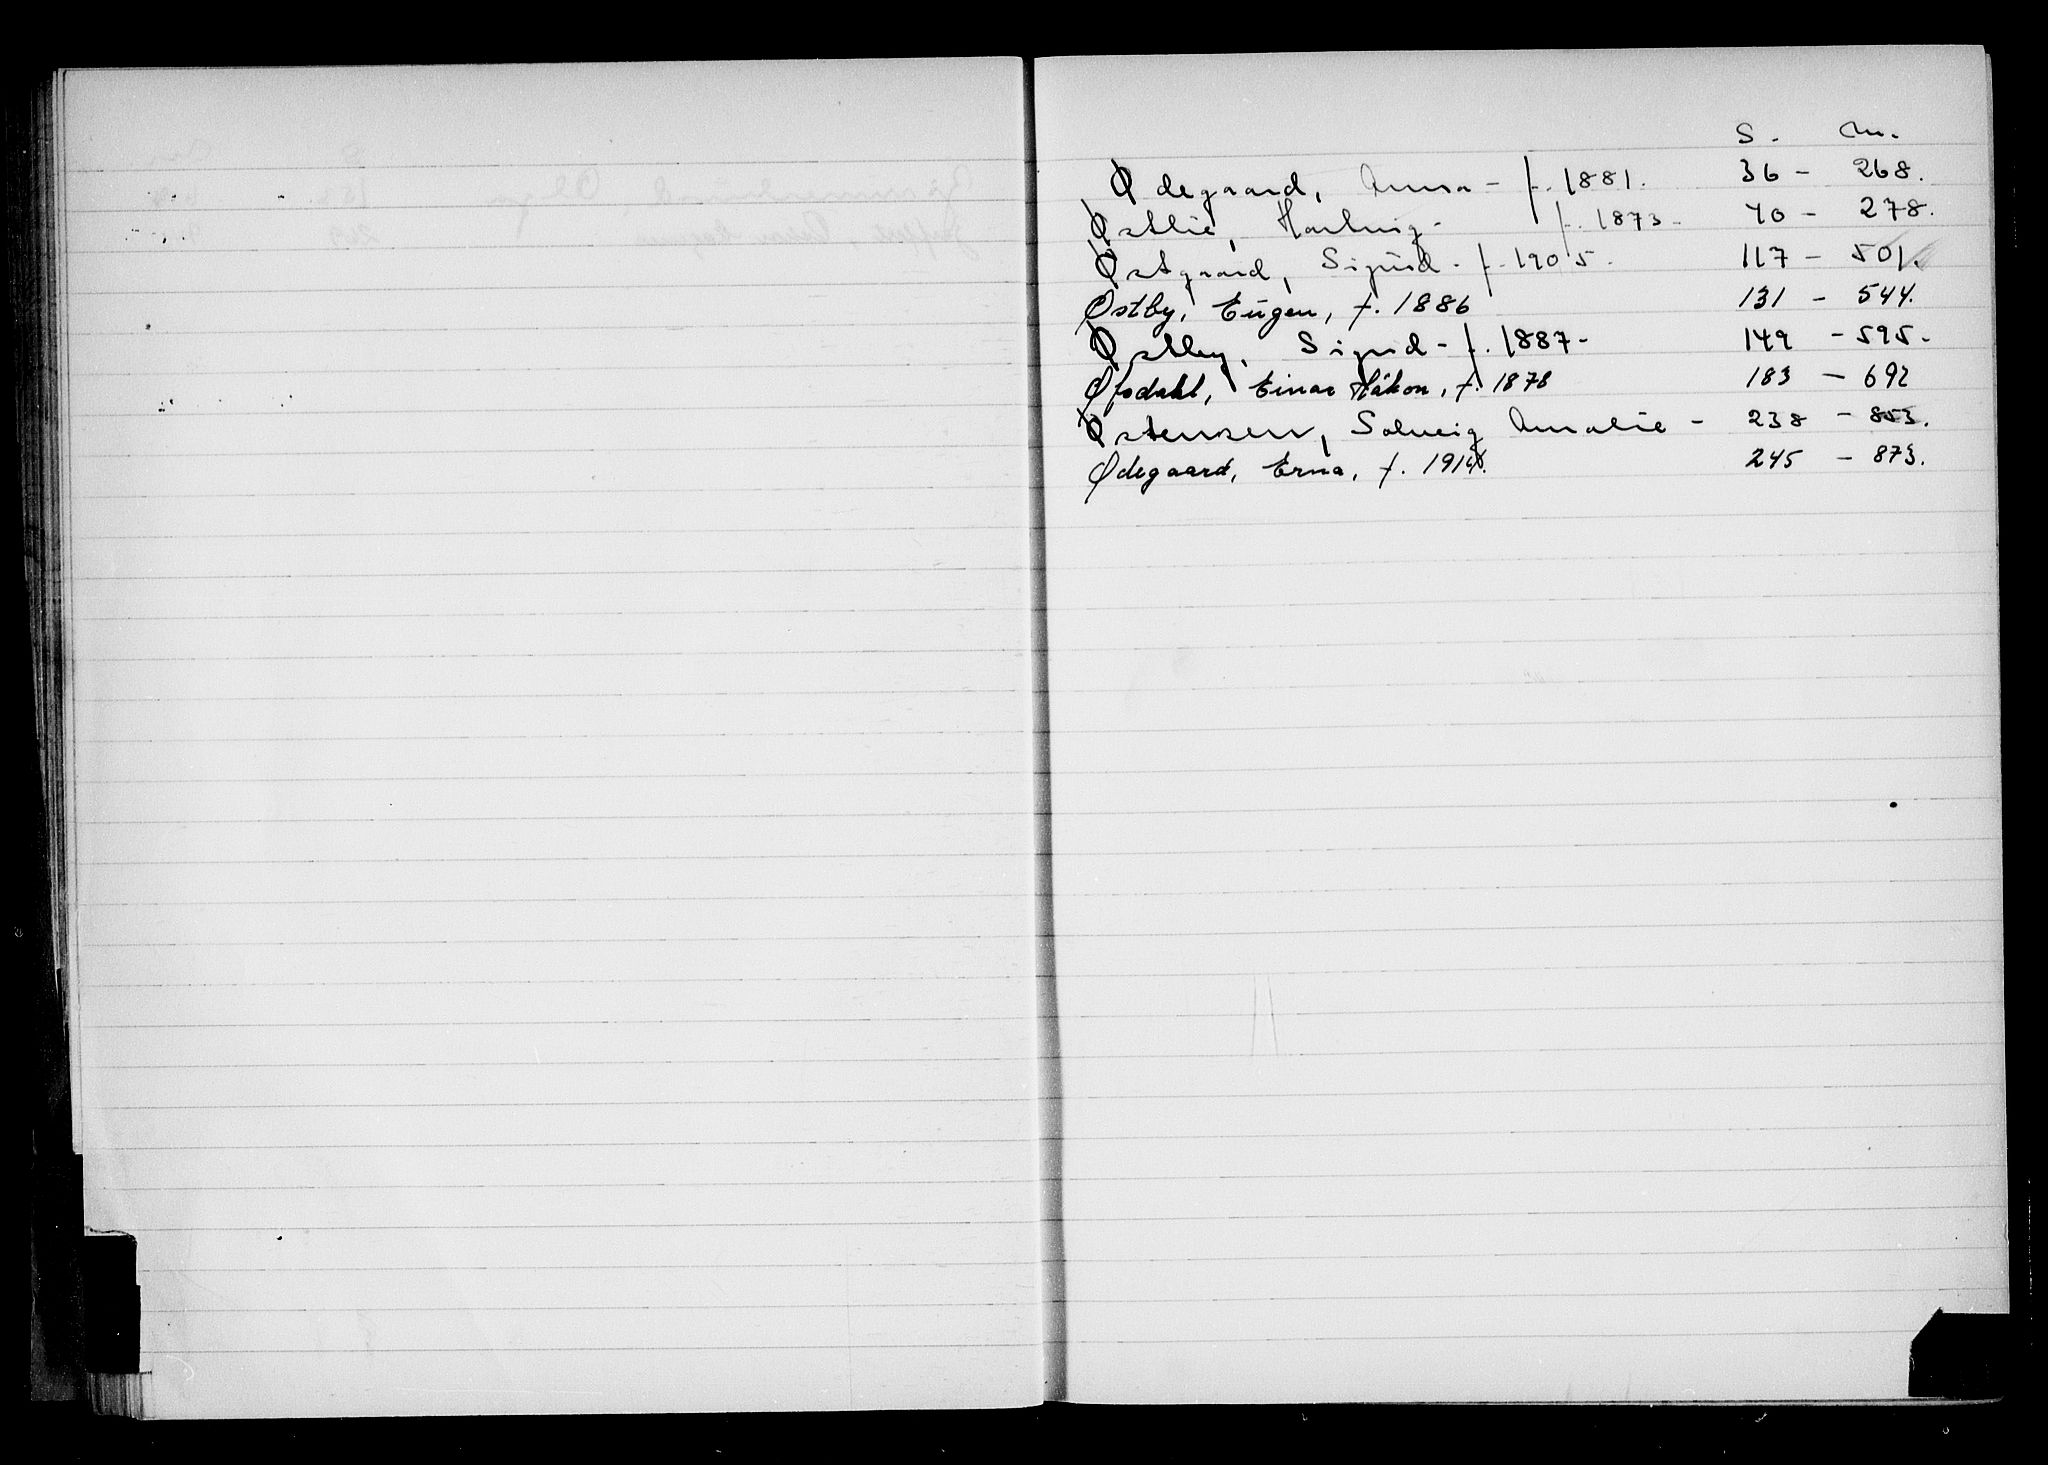 S. Nr.
Ødegaard, Anna - f. 1881. 36 - 268.
Østlie, Hartvig - f. 1873 - 40 - 278.
Østgaard, Sigurd - f. 1905. 117 - 501.
Østby, Eugen, f. 1886 131 - 544.
Østby, Sigurd - f. 1887 - 149 - 595.
Øfsdahl, Einar Håkon, f. 1878 183 - 692
Østensen, Solveig Amalie - 238 - 853.
Ødegaard, Erna, f. 245 - 873.